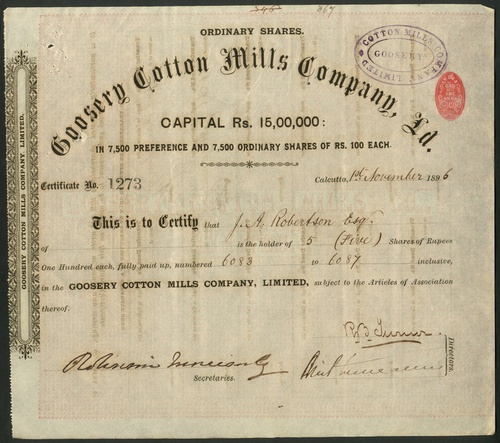 867
ORDINARY SHARES.
Goosery Cotton Mills Company, Ld.
COTTON MILLS COMPANY
GOOSERY
LIMITED
CAPITAL Rs. 15,00,000:
IN 7,500 PREFERENCE AND 7,500 ORDINARY SHARES OF RS. 100 EACH.
Certificate No. 1273
Calcutta, 1st November 1896
This is to Certify that J. A. Robertson Esqr
of is the holder of 5 (Five) Shares of Rupees
One Hundred each, fully paid up, numbered 6083 to 6087 inclusive,
in the GOOSERY COTTON MILLS COMPANY, LIMITED, subject to the Articles of Association
thereof.
Secretaries.
Directors.
GOOSERY COTTON MILLS COMPANY, LIMITED.